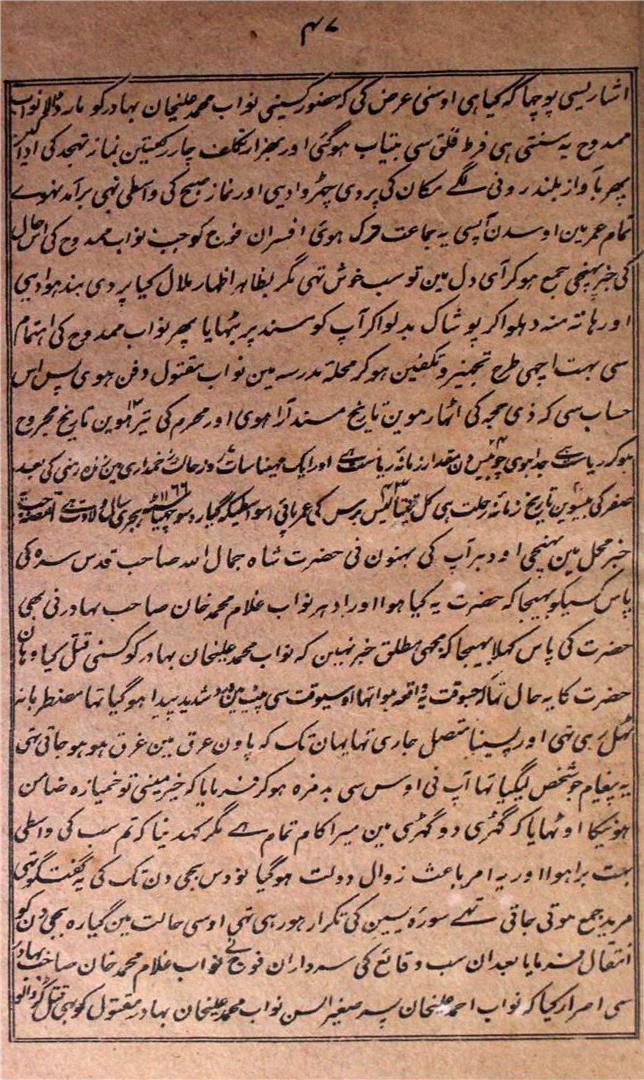 ۴۷
اشاریسی پوچہا کہ کیا ہی اوسنی عرض کی کہ حضور کسینی نواب محمد علیخان بہادر کو مار ڈالا نواب
ممدوح یہ سنتی ہی فرط قلق سی بیتاب ہوگئی اور بہزار تکلف چار رکعتین نماز تہجد کی ادا کین
پھر بآواز بلند رونی لگے مکان کی پردی چہڑوادیی اور نماز صبح کی واسطی نہی برآمد نہوے
تمام عمر مین اوسدن آپسی یہ جماعت ترک ہوی افسران فوج کو جب نواب ممدوح کی اس حال
کی خبر پہنچی جمع ہو کر آی دل مین تو سب خوش تہی مگر بظاہر اظہار ملال کیا پردی بندہوادیی
اور ہاتہ منہ دہلوا کر پوشاک بدلوا کر آپ کو مسند پر بٹہایا پھر نواب ممدوح کی اہتمام
سی بہت اچہی طرح تجہیز و تکفین ہو کر محلہ مدرسہ مین نواب مقتول دفن ہوی پس اس
حساب سی کہ ذی حجہ کی اٹہارہوین تاریخ مسند آرا ہوی اور محرم کی تیرہوین تاریخ مجروح
ہو کر ریاست سے جدا ہوی چوبیس دن مقدار زمانہ ریاست ہے اور ایک مہینا سات روز حالت مین زندہ رہنی کی بعد
صفر کی بیسوین تاریخ زمانہ رحلت ہی کل برس کی عمر پائی اسواسطیکہ گیارہ سو ہجری سال ولادت ہے القصہ جب
خبر محل مین پہنچی اودہر آپ کی بہنون نی حضرت شاہ جمال اللہ صاحب قدس سرہ کی
پاس کسیکو بہیجا کہ حضرت یہ کیا ہوا اور ادہر نواب غلام محمد خان صاحب بہادر نی بھی
حضرت کی پاس کہلا بہیجا کہ مجہی مطلق خبر نہین کہ نواب محمد علیخان بہادر کو کسنی قتل کیا وہان
حضرت کا یہ حال تہا کہ جسوقت یہ واقعہ ہوا تہا اوسیوقت سی پیٹ مین درد شدید پیدا ہوگیا تہا مضطربانہ
ٹہل رہی تہی اور پسینا متصل جاری تہا یہان تک کہ پاون عرق مین غرق ہو ہو جاتی تہی
یہ پیغام جو شخص لیگیا تہا آپ نی اوس سی بدمزہ ہو کر فرمایا کہ خیر مینی تو خمیازہ ضامن
ہونیکا اوٹہایا کہ گہڑی دو گہڑی مین میرا کام تمام ہے مگر کہدینا کہ تم سب کی واسطی
بہت برا ہوا اور یہ امر باعث زوال دولت ہوگیا نو دس بجی دن تک کی یہ گفتگو تہی
مرید جمع ہوتی جاتی تہے سورہ یسین کی تکرار ہو رہی تہی اوسی حالت مین گیارہ بجی دن کو
انتقال فرمایا بعد ان سب وقائع کی سرداران فوج نے نواب غلام محمد خان صاحب بہادر
سی اصرار کیا کہ نواب احمد علیخان پسر صغیر السن نواب محمد علیخان بہادر مقتول کو بہی قتل کروالو